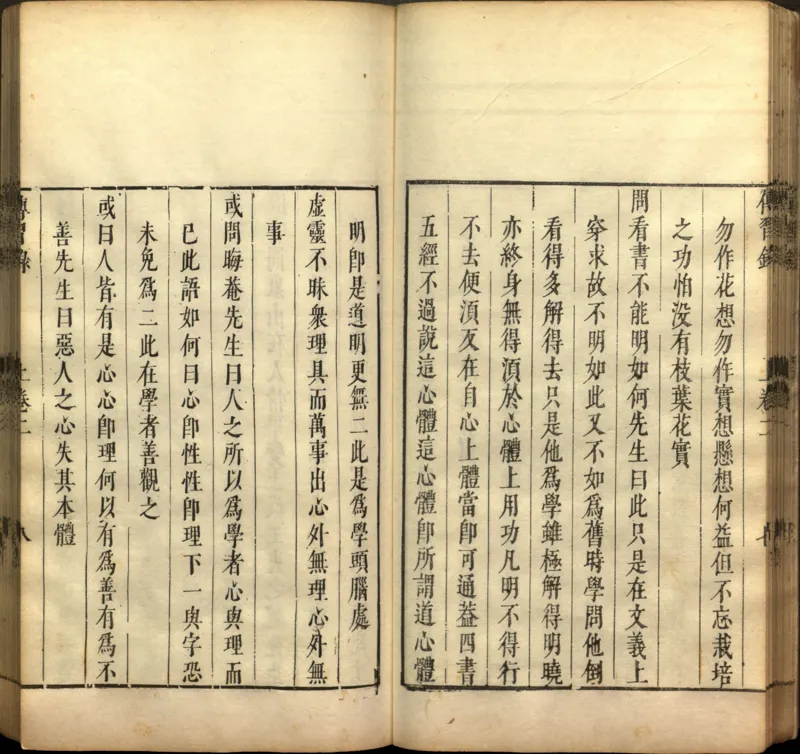 勿作花想勿作實想懸想何益但不忘栽培
之功怕沒有枝葉花實
問看書不能明如何先生曰此只是在文義上
穿求故不明如此又不如爲舊時學問他倒
看得多解得去只是他爲學雖極解得明曉
亦終身無得湏於心體上用功凡明不得行
不去便湏反在自心上體當卽可通葢四書
五經不過說這心體這心體卽所謂道心體
明卽是道明更無二此是爲學頭腦處
虛靈不昧衆理具而萬事出心外無理心外無
事
或問晦菴先生曰人之所以爲學者心與理而
已此語如何曰心卽性性卽理下一與字恐
未免爲二此在學者善觀之
或曰人皆有是心心卽理何以有爲善有爲不
善先生曰惡人之心失其本體
傳習錄 上卷二 八